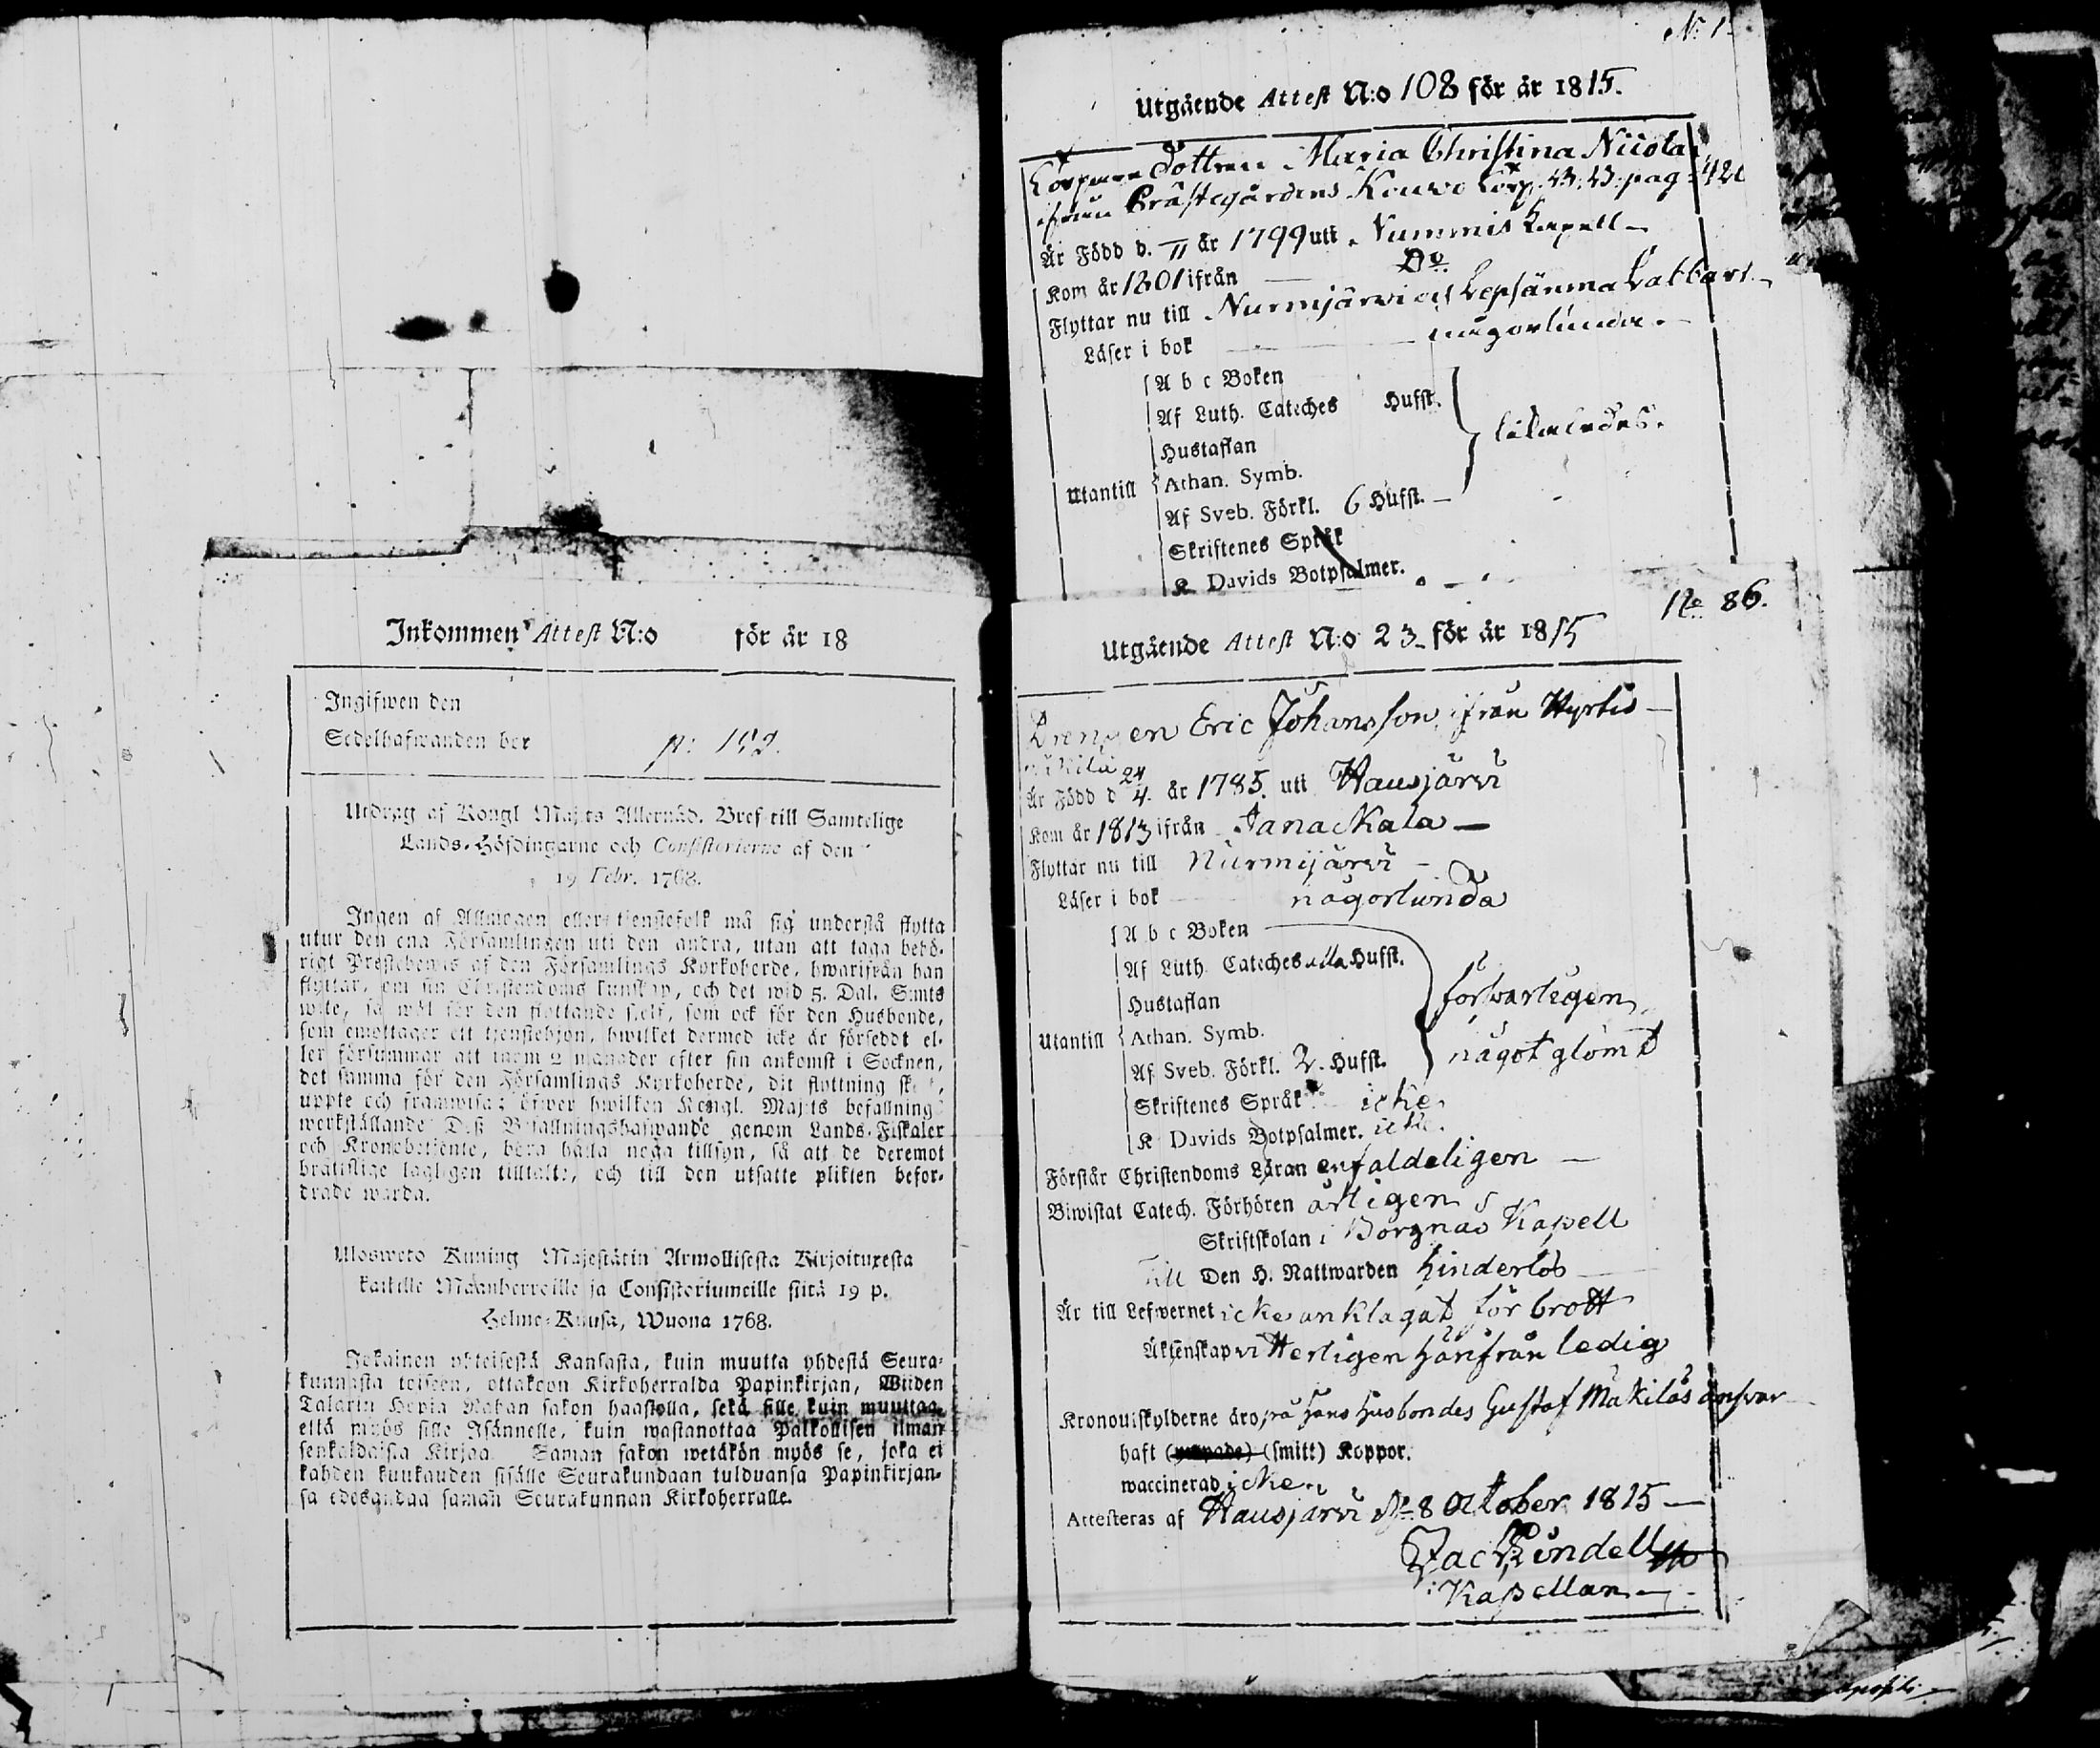 Inkommen Attest N:o för år 18
Ingifwen den
Sedelhafwanden bor p:
Utdrag af Kongl Maj:ts Allernåd. Bref till Samtelige
Lands-Höfdingarne och Consistorierne af den
19 Febr. 1768.
Ingen af Allmogen eller tjenstefolk må sig understå flytta
utur den ena Församlingen uti den andra, utan att taga behö-
rigt Prestebewis af den Församlings Kyrkoherde, hwarifrån han
flyttar, om sin Christendoms kunskap, och det wid 5. Dal. S:mts
wite, så wäl för den flyttande sjelf, som ock för den Husbonde,
som emottager ett tjenstehjon, hwilket dermed icke är försedt el-
ler försummar att inom 2 månader efter sin ankomst i Socknen,
det samma för den Församlings Kyrkoherde, dit flyttning sker,
uppte och framwisa; öfwer hwilken Kongl. Maj:ts befallning
werkställande Deß Befallningshafwande genom Lands-Fiskaler
och Kronobetjente, böra hålla noga tillsyn, så att de deremot
brättslige lagligen tilltalte, och till den utsatte plikten befor-
drade warda.
Ulosweto Kuning Majestätin Armollisesta Kirjoituxesta
kaikille Maanherroille ja Consistoriumeille siitä 19 p.
Helme-Kuusa, Wuona 1768.
Jokainen yhteisestä Kansasta, kuin muutta yhdestä Seura-
kunnasta toiseen, ottakoon Kirkoherralda Papinkirjan, Wiiden
Talarin Hopia Rahan sakon haastolla, sekä sille kuin muuttaa,
että myös sille Isännelle, kuin wastanottaa Palkollisen ilman
senkaldaista Kirjaa. Saman sakon wetäkön myös se, joka ei
kahden kuukauden sisälle Seurakundaan tulduansa Papinkirjan-
sa edesandaa saman Seurakunnan Kirkoherralle.
N: 1
Utgående Attest N:o 108 för år 1815.
Dottren Maria Christina Nicola
ifrån Prästegårdens pag: 420
Är Född d. år 1799 uti Nummis Kapell
Kom år 1801 ifrån Do
Flyttar nu till Nurmijärwi och Lepsänma
Läser i bok någorlunda.
A b c Boken
Af Luth. Cateches Hufst.
Hustaflan
likaledes.
Utantill
Athan. Symb.
Af Sveb. Förkl. 6 Hufst.
Skriftenes Språk
K Davids Botpsalmer.
No 86.
Utgående Attest N:o 23 för år 1815
Drengen Eric Johansson ifrån Hyrlis
mäkilä
Är Född d 24/4. år 1785. uti Hausjärvi
Kom år 1813 ifrån Janackala
Flyttar nu till Nurmijärvi
Läser i bok någorlunda
A b c Boken
Af Luth. Cateches alla Hufst.
Hustaflan
försvarligen
Utantill
Athan. Symb.
något glömt
Af Sveb. Förkl. 2. Hufst.
Skriftenes Språk icke
K Davids Botpsalmer. icke.
Förstår Christendoms Läran enfaldeligen
Biwistat Catech. Förhören årligen
Skriftskolan i Borgnäs Kapell
Till Den H. Nattwarden hinderlös
Är till Lefwernet icke anklagat för brott
Äktenskap vitterligen härifrån ledig
Kronoutskylderne äro på hans husbondes Gustaf Mäkiläs ansvar
haft (ympade) (smitt) Koppor.
waccinerad icke
Attesteras af Hausjärvi d. 8 October 1815
Jac Lindell
Kapellan